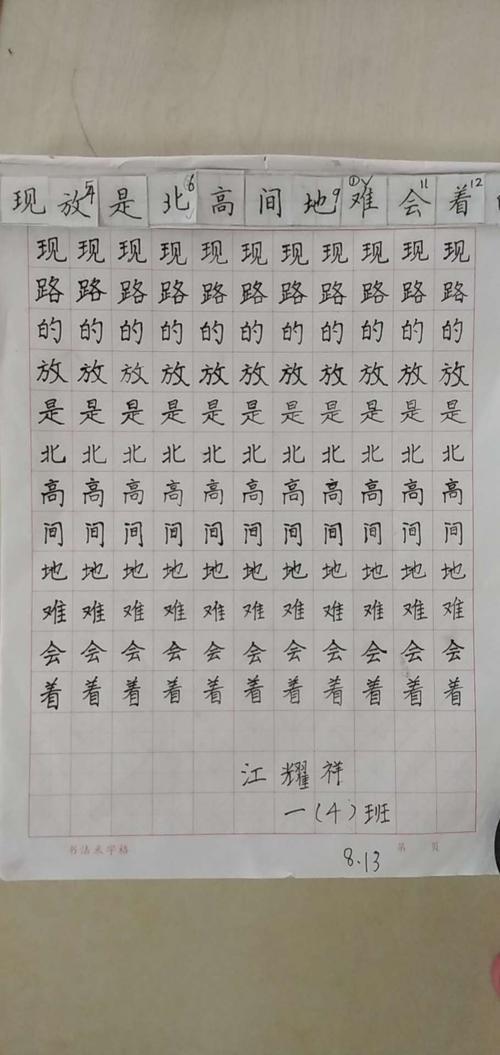 现 放 是 北6 高 间 地9 难 会11 着12
现现现现现现现现现现现
路路路路路路路路路路路
的的的的的的的的的的的
放放放放放放放放放放放
是是是是是是是是是是是
北北北北北北北北北北北
高高高高高高高高高高高
间间间间间间间间间间间
地地地地地地地地地地地
难难难难难难难难难难难
会会会会会会会会会会会
着着着着着着着着着着着
江耀祥
一(4)班
书法米字格 第 页
8.13